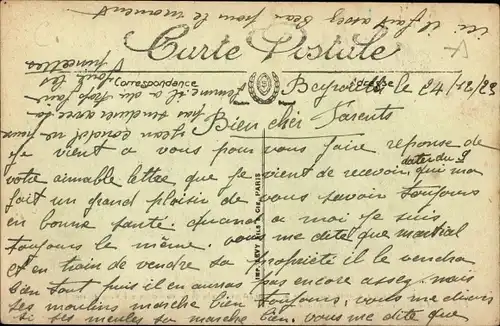 ici il fait assez beau pour le moment
Carte Postale
Correspondance
Adresse
Beyrouth, le 24/12/23
Bien cher Parents
Je vient a vous pour vous faire réponse de
votre aimable lettre que je vient de recevoir qui ma
date du 9
fait un grand plaisir de vous savoir toujours
en bonne santé. quand a moi je suis
toujours le même. vous me dite que martial
et en train de vendre sa propriété il le vendra
bien tout puis il en auras pas encore assez. mais
les moulins marche bien toujours, vous me
si ses meules sa marche bien. vous me dite que
femme il a du
Jean
IMP. LEVY FILS & CIE PARIS